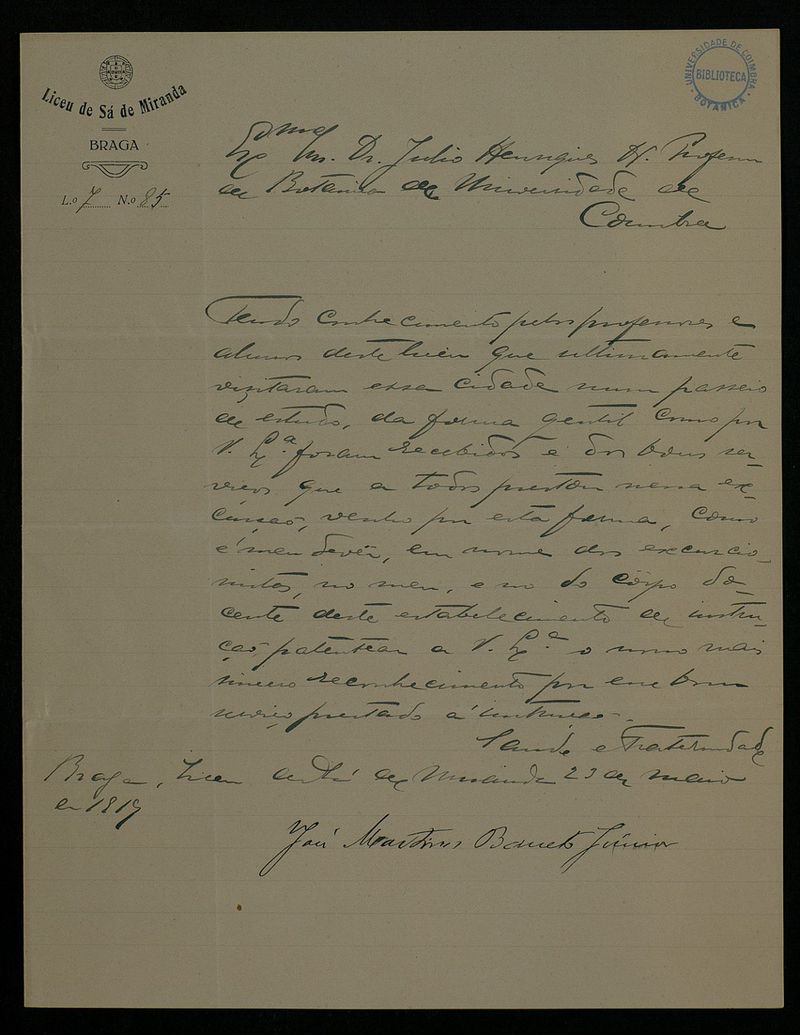 Liceu de Sá de Miranda
BRAGA
L.º 7 N.º 85
UNIVERSIDADE DE COIMBRA
BIBLIOTECA
BOTANICA
Exmo Snr. Dr. Julio Henriques D. Professor
de Botanica da Universidade de
Coimbra
Tendo conhecimento pelos professores e
alunos deste liceu que ultimamente
visitaram essa cidade num passeio
de estudo, da forma gentil como por
V. Ex.ª foram recebidos e dos bons ser-
viços que a todos prestou nessa ex-
cursão, venho por esta forma, como
é meu dever, em nome dos excursio-
nistas, no meu, e no do côrpo do-
cente deste estabelecimento de instru-
ção, patentear a V. Ex.ª o nosso mais
sincero reconhecimento por esse bom
serviço prestado á instrução.
Saude e Fraternidade
Braga, Liceu de Sá de Miranda 23 de maio
de 1919
José Martins Barreto Júnior